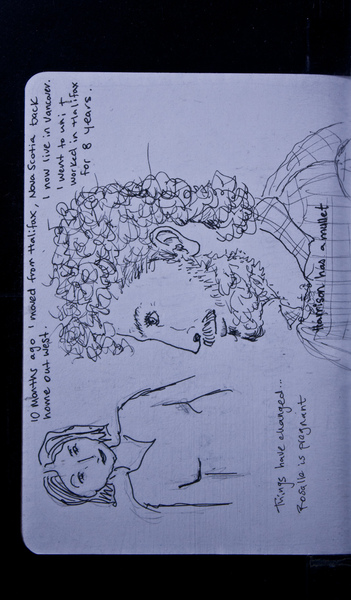 10 Months ago I moved from Halifax, Nova Scotia back
home out west.
I now live in Vancover.
I went to uni +
worked in Halifax
for 8 years.
Harrison has a mullet
Things have changed...
Rosalie is pregnant